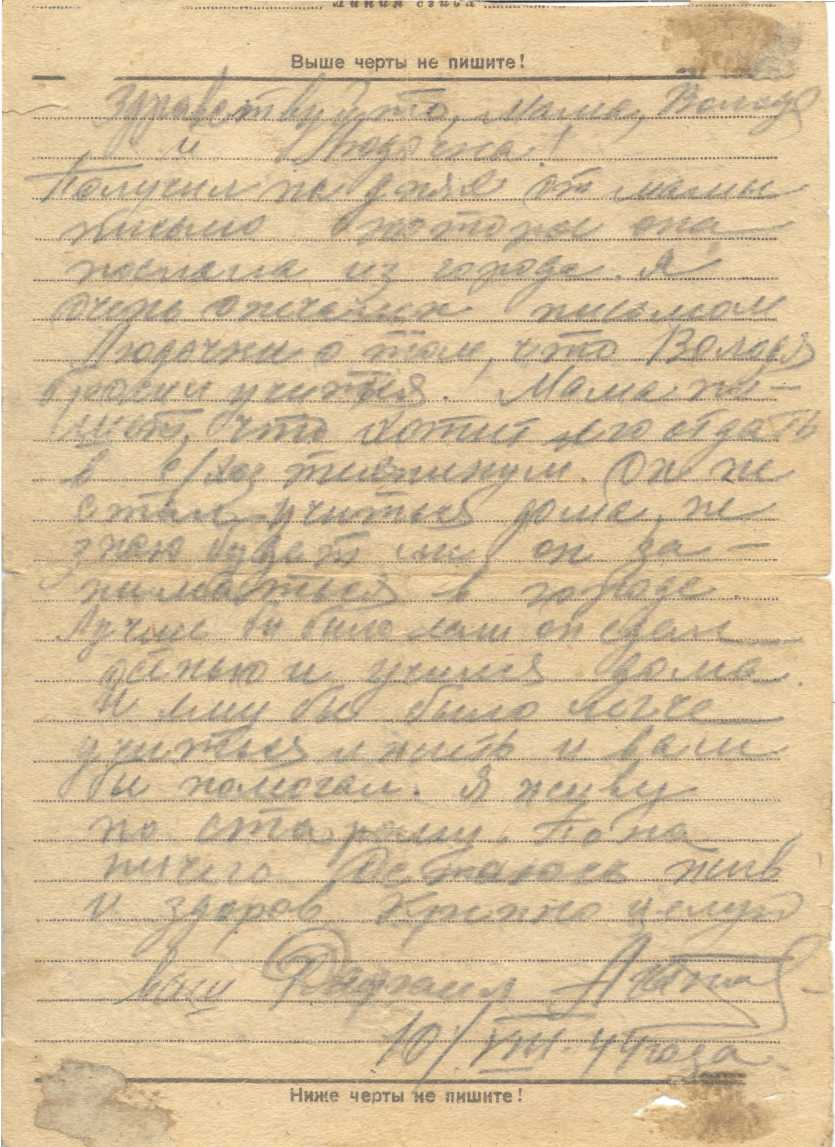 Линия сгиба
Выше черты не пишите!
Здравствуйте, мама, Володя
и Людочка!
Получил на днях от мамы
письмо которое она
послала из города. Я
очень опечален письмом
Людочки о том, что Володя
бросил учиться. Мама пи-
шет, что хотит его отдать
в с/хоз техникум. Он не
стал учиться дома, не
знаю будет ли он за-
ниматься в городе.
Лучше бы было если он сдал
осенью и учился дома.
И ему бы было легче
учиться и жить и вам
бы помогал. Я живу
по старому. Пока
ничего. Остаюсь жив
и здоров. Крепко целую
ваш
10/VIII-44 года.
Ниже черты не пишите!